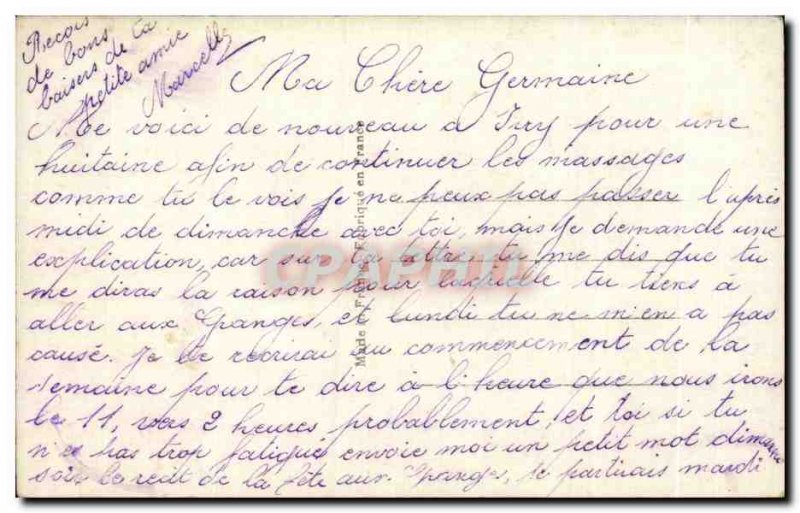 Reçois
de bons
baisers de ta
petite amie
Marcelle
Ma Chère Germaine
Me voici de nouveau à Ivry pour une
huitaine afin de continuer les massages
comme tu le vois je ne peux pas passer l'après
midi de dimanche avec toi, mais je demande une
explication, car sur ta lettre tu me dis que tu
me diras la raison pour laquelle tu tiens à
aller aux Granges, et lundi tu ne m'en a pas
causé. Je te recrirai au commencement de la
semaine pour te dire à l'heure que nous irons
le 11, vers 2 heures probablement, et toi si tu
n'es pas trop fatigué envoie moi un petit mot dimanche
soir le récit de la fête aux Granges, je partirais mardi
Made in France - Fabriqué en France
CPAPHIL